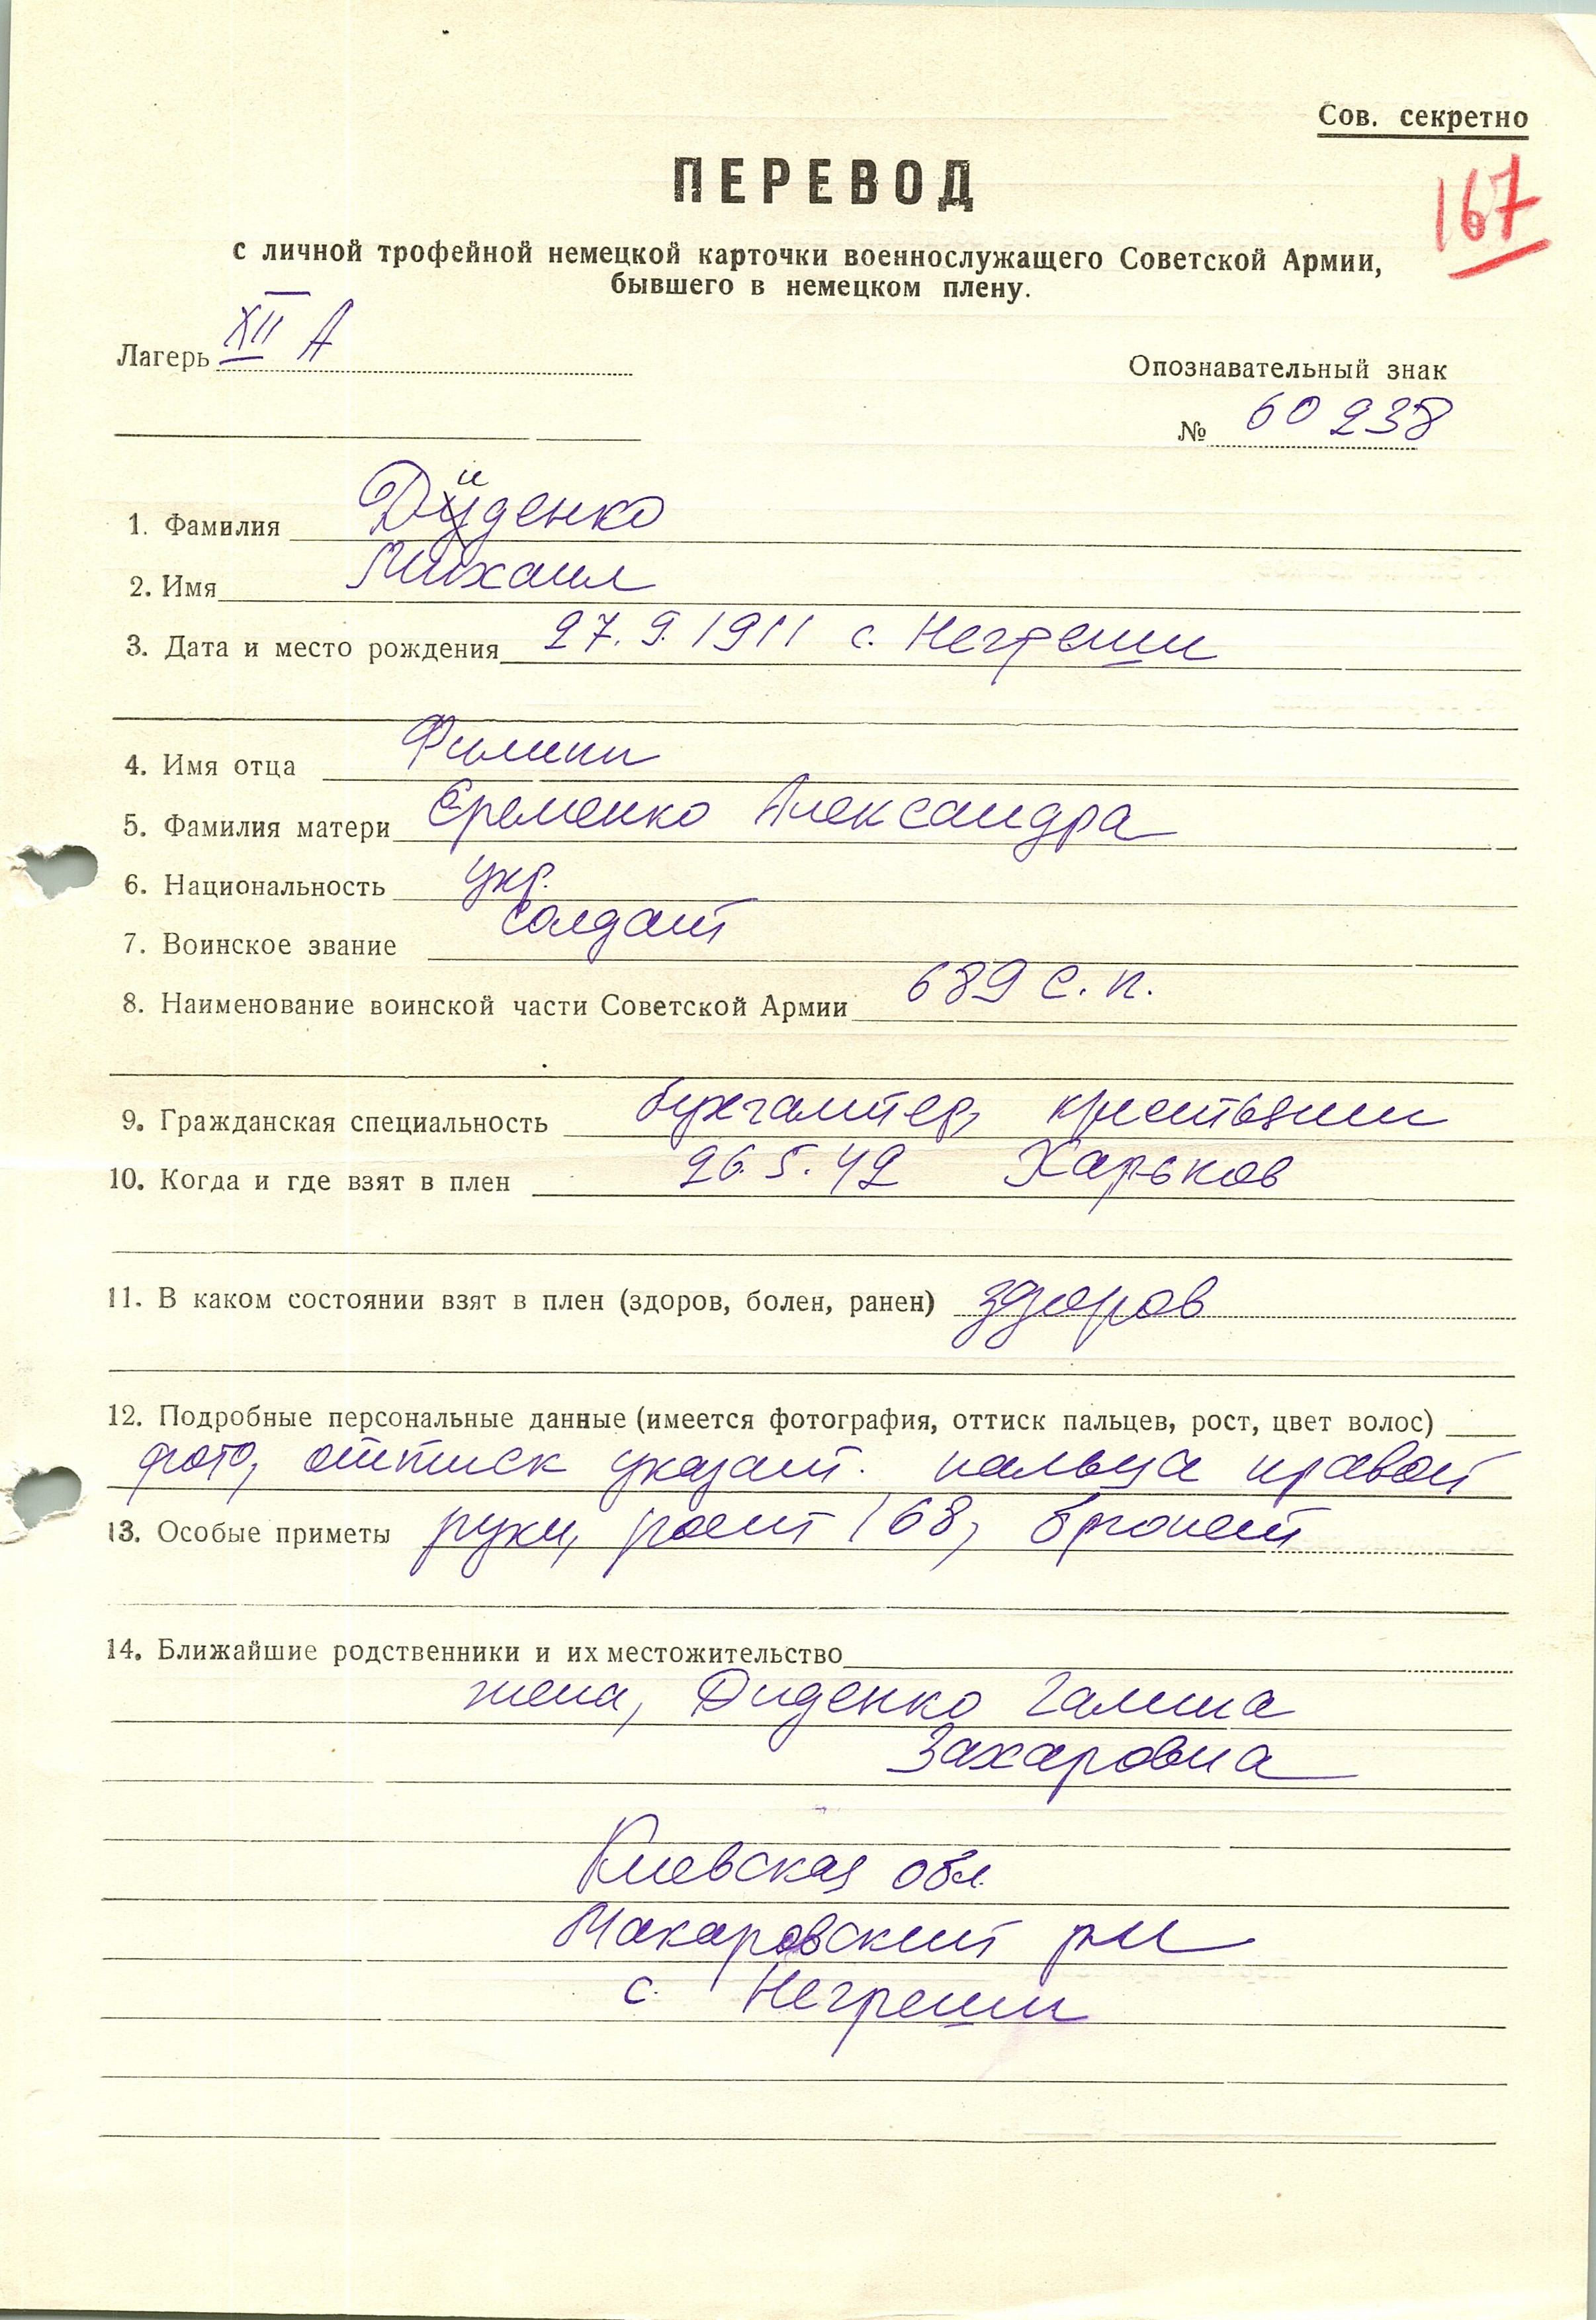 Сов. секретно
ПЕРЕВОД
167
с личной трофейной немецкой карточки военнослужащего Советской Армии,
бывшего в немецком плену.
Лагерь XII А
Опознавательный знак
№ 60238
1. Фамилия Диденко
2. Имя Михаил
3. Дата и место рождения 27.9.1911 с. Негреши
4. Имя отца Филипп
5. Фамилия матери Еременко Александра
6. Национальность укр.
7. Воинское звание солдат
8. Наименование воинской части Советской Армии 689 с.п.
9. Гражданская специальность бухгалтер, крестьянин
10. Когда и где взят в плен 26.5.42 Харьков
11. В каком состоянии взят в плен (здоров, болен, ранен) здоров
12. Подробные персональные данные (имеется фотография, оттиск пальцев, рост, цвет волос)
фото, оттиск указат. пальца правой
13. Особые приметы руки, рост 168, брюнет
14. Ближайшие родственники и их местожительство
жена, Диденко Галина
Захаровна
Киевская обл.
Макаровский р-н
с. Негреши